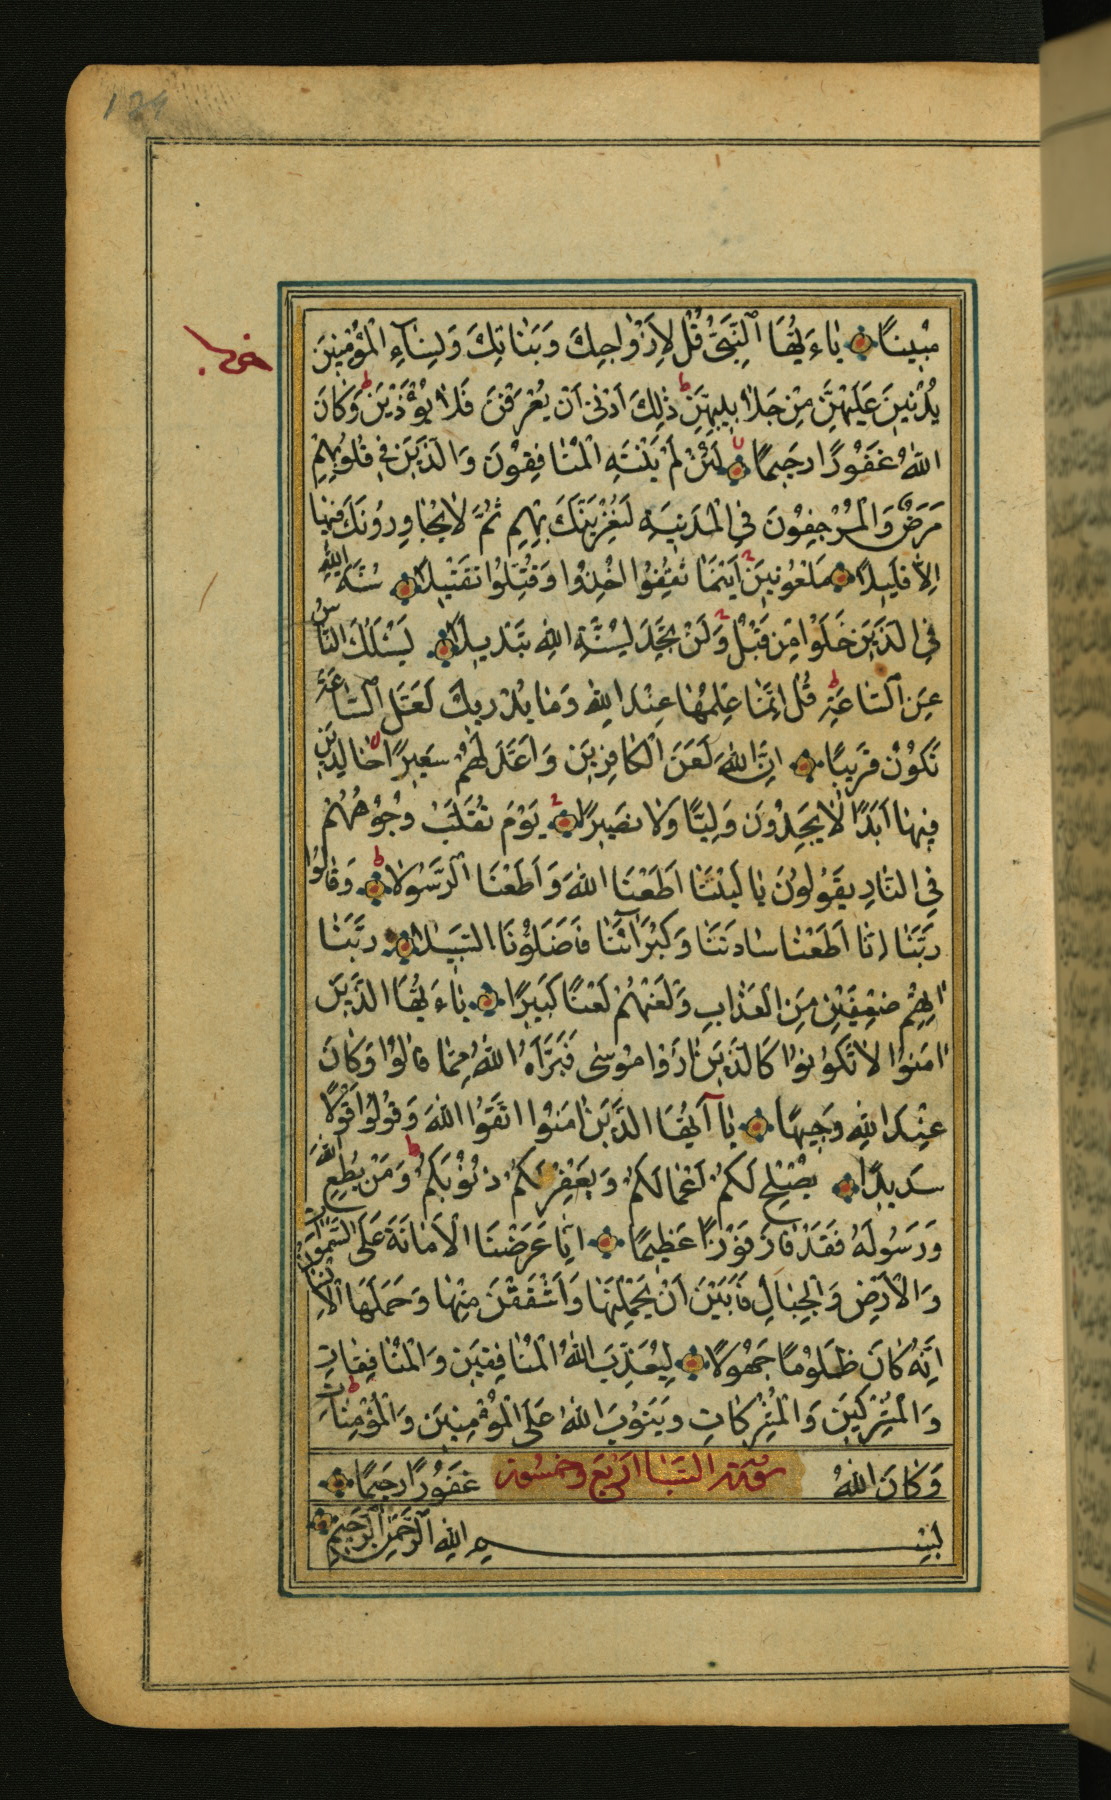 مُبِينًا يَاءَيُّهَا النَّبِيُّ قُلْ لِأَزْوَاجِكَ وَبَنَاتِكَ وَنِسَاءِ الْمُؤْمِنِينَ
يُدْنِينَ عَلَيْهِنَّ مِنْ جَلَابِيبِهِنَّ ط ذَلِكَ أَدْنَى أَنْ يُعْرَفْنَ فَلَا يُؤْذَيْنَ ط وَكَانَ
اللَّهُ غَفُورًا رَحِيمًا لَئِنْ لَمْ يَنْتَهِ الْمُنَافِقُونَ وَالَّذِينَ فِي قُلُوبِهِمْ
مَرَضٌ وَالْمُرْجِفُونَ فِي الْمَدِينَةِ لَنُغْرِيَنَّكَ بِهِمْ ثُمَّ لَا يُجَاوِرُونَكَ فِيهَا
إِلَّا قَلِيلًا مَلْعُونِينَ أَيْنَمَا ثُقِفُوا أُخِذُوا وَقُتِّلُوا تَقْتِيلًا سُنَّةَ اللَّهِ
فِي الَّذِينَ خَلَوْا مِنْ قَبْلُ وَلَنْ تَجِدَ لِسُنَّةِ اللَّهِ تَبْدِيلًا يَسْئَلُكَ النَّاسُ
عَنِ السَّاعَةِ ط قُلْ إِنَّمَا عِلْمُهَا عِنْدَ اللَّهِ وَمَا يُدْرِيكَ لَعَلَّ السَّاعَةَ
تَكُونُ قَرِيبًا إِنَّ اللَّهَ لَعَنَ الْكَافِرِينَ وَأَعَدَّ لَهُمْ سَعِيرًا خَالِدِينَ
فِيهَا أَبَدًا لَا يَجِدُونَ وَلِيًّا وَلَا نَصِيرًا يَوْمَ تُقَلَّبُ وُجُوهُهُمْ
فِي النَّارِ يَقُولُونَ يَا لَيْتَنَا أَطَعْنَا اللَّهَ وَأَطَعْنَا الرَّسُولَا ط وَقَالُوا
رَبَّنَا إِنَّا أَطَعْنَا سَادَتَنَا وَكُبَرَآئَنَا فَأَضَلُّونَا السَّبِيلَا رَبَّنَا
اٰتِهِمْ ضِعْفَيْنِ مِنَ الْعَذَابِ وَالْعَنْهُمْ لَعْنًا كَبِيرًا يَاءَيُّهَا الَّذِينَ
اٰمَنُوا لَا تَكُونُوا كَالَّذِينَ اٰذَوْا مُوسَى فَبَرَّأَهُ اللَّهُ مِمَّا قَالُوا وَكَانَ
عِنْدَ اللَّهِ وَجِيهًا يَآ أَيُّهَا الَّذِينَ اٰمَنُوا اتَّقُوا اللَّهَ وَقُولُوا قَوْلًا
سَدِيدًا يُصْلِحْ لَكُمْ أَعْمَالَكُمْ وَيَغْفِرْ لَكُمْ ذُنُوبَكُمْ ط وَمَنْ يُطِعِ اللَّهَ
وَرَسُولَهُ فَقَدْ فَازَ فَوْزًا عَظِيمًا إِنَّا عَرَضْنَا الْأَمَانَةَ عَلَى السَّمٰوَاتِ
وَالْأَرْضِ وَالْجِبَالِ فَأَبَيْنَ أَنْ يَحْمِلْنَهَا وَأَشْفَقْنَ مِنْهَا وَحَمَلَهَا الْإِنْسَانُ
إِنَّهُ كَانَ ظَلُومًا جَهُولًا لِيُعَذِّبَ اللَّهُ الْمُنَافِقِينَ وَالْمُنَافِقَاتِ
وَالْمُشْرِكِينَ وَالْمُشْرِكَاتِ وَيَتُوبَ اللَّهُ عَلَى الْمُؤْمِنِينَ وَالْمُؤْمِنَاتِ ط
وَكَانَ اللَّهُ سورة السبا اربع وخمسون غَفُورًا رَحِيمًا
بِسْمِ اللَّهِ الرَّحْمٰنِ الرَّحِيمِ